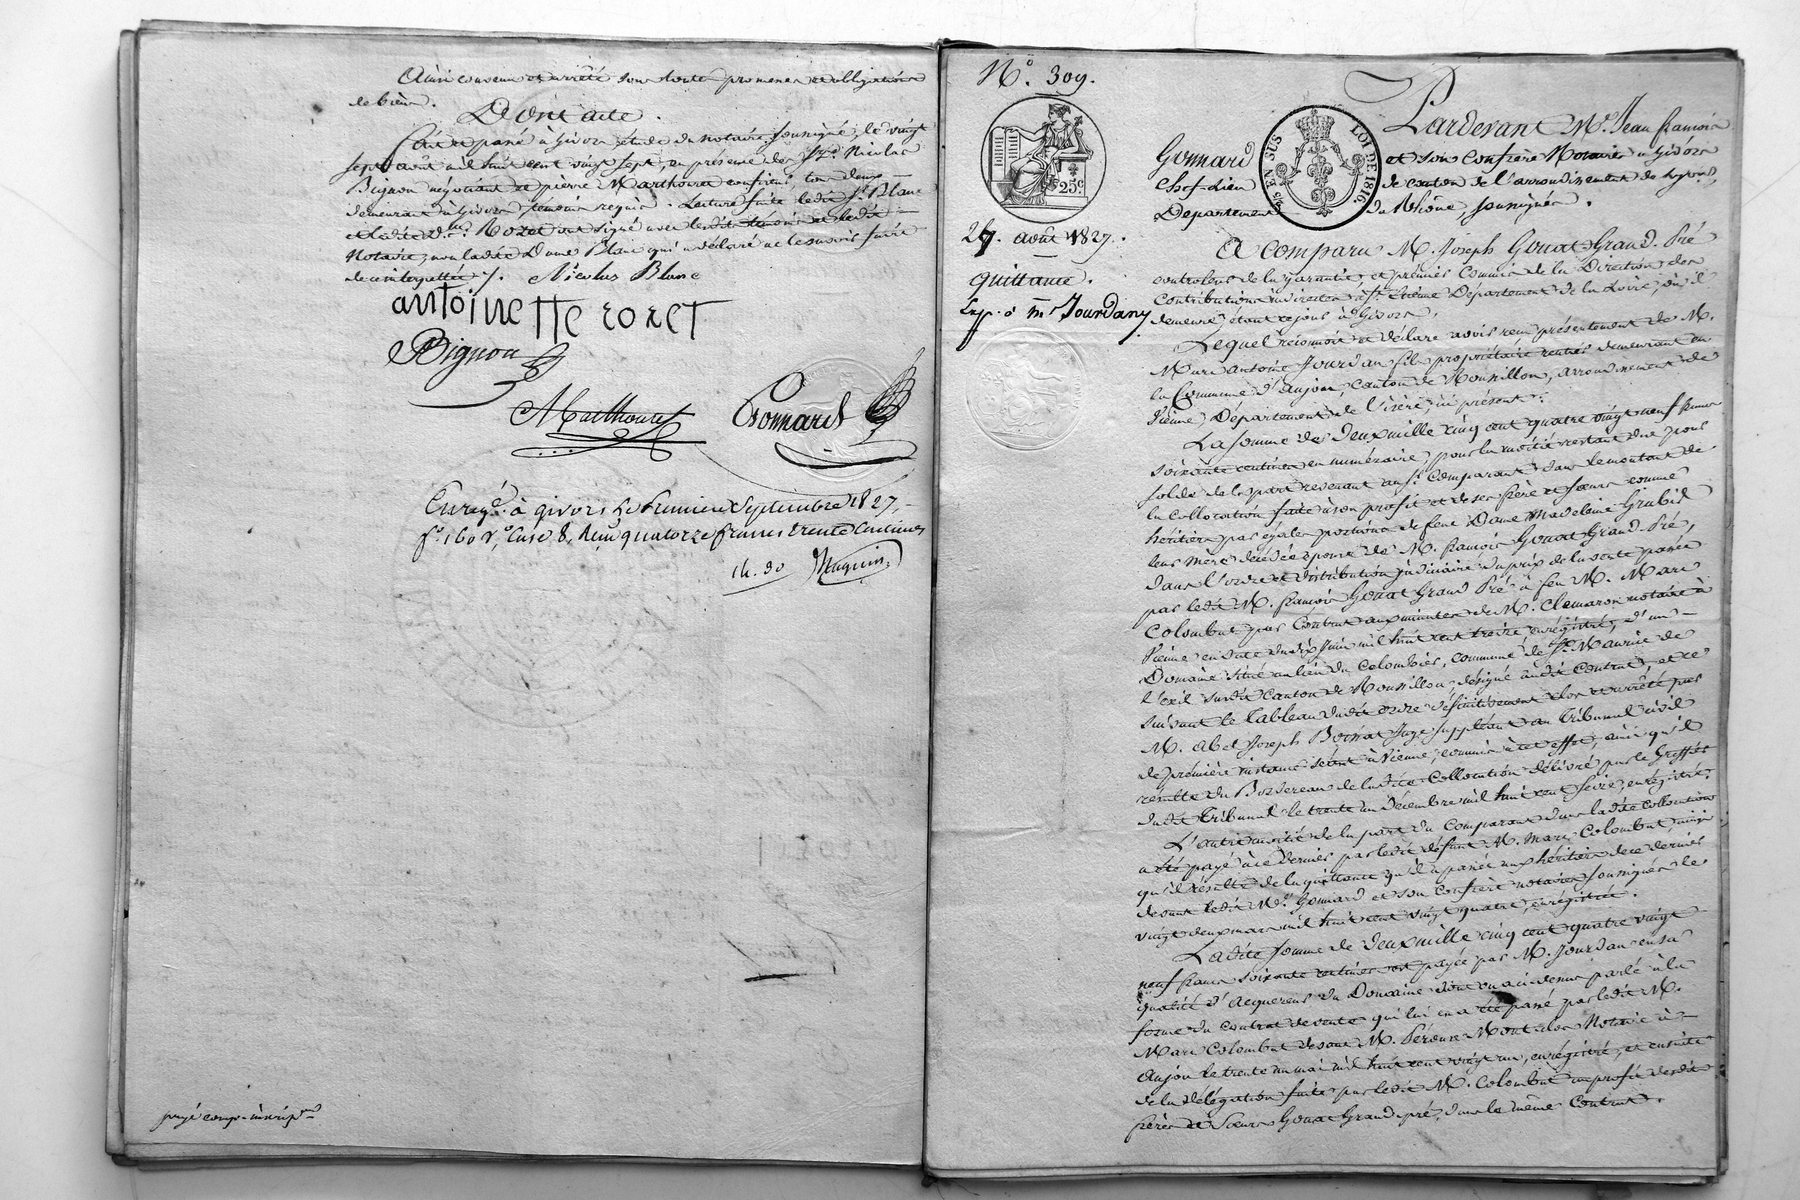 Ainsi convenu et arrêté sous toutes promesses et obligations
de biens.
Dont acte.
Fait et passé à Givors étude du notaire soussigné, le vingt
sept août mil huit cent vingt sept, en présence des Srs Nicolas
Bignon négociant et pierre Marthouret confiseur, tous deux
demeurant à Givors témoins requis. Lecture faite ledit Sr Blanc
et ladite Dlle Rozet ont signé avec lesdits témoins et ledit
Notaire, non ladite Dame Blanc qui a déclaré ne le savoir faire
de ce interpellée ./. Nicolas Blanc
antoinette rozet
Bignon
Marthouret Gonnard
Enregé à givors le Premier Septembre 1827,
fo 160 Vo, Case 8, Reçu quatorze francs trente Centimes
14. 30 Maguin
payé comp.
No 309.
25c.
27. août 1827.
quittance.
Exp. à Mr Jourdan
Pardevant Me Jean François
Gonnard et son confrère Notaires à Givors
chef-lieu de canton de l'arrondissement de Lyon,
Département du Rhône, soussignés.
EN SUS LOI DE 1816.
A Comparu M. Joseph Gonat Grand-Pré
controleur de la garantie, et premier Commis de la Direction des
Contributions indirectes à St Etienne Département de la Loire, où il
demeure, étant ce jour à Givors,
Lequel reconnoit et déclare avoir reçu présentement de M.
Marc Antoine Jourdan fils propriétaire rentier demeurant en
la Commune d'anjou, Canton de Roussillon, arrondissement de
Vienne, Département de l'isère, ici présent.
La somme de deux mille cinq cent quatre vingt neuf francs
soixante centimes en numéraire, pour la moitié restant due pour
solde de la part revenant au Sr Comparant dans le montant de
la Collocation faite à son profit et de ses frère et sœurs comme
héritiers par égales portions de feue Dame Madelaine Grubis
leur mère décédée épouse de M. François Gonat Grand-Pré,
dans l'ordre et distribution judiciaire du prix de la vente passée
par ledit M. François Gonat Grand Pré à feu M. Marc
Colombat par Contrat aux minutes de M. Clemaron notaire à
Vienne en date du dix juin mil huit cent treize, enregistré, d'un
Domaine situé au lieu du Colombier, commune de St Maurice de
l'exil susdit Canton de Roussillon, désigné audit Contrat, et ce
suivant le Tableau dudit ordre définitivement clos et arrêté par
M. Abel Joseph Boissat Juge suppléant au Tribunal civil
de première instance séant à Vienne, commis à cet effet, ainsi qu'il
résulte du Bordereau de ladite Collocation délivré par le Greffier
dudit Tribunal le trente un Décembre mil huit cent seize, enregistré.
L'autre moitié de la part du Comparant dans ladite collocation
a été payé à ce dernier par ledit défunt M. Marc Colombat, ainsi
qu'il résulte de la quittance qu'il a passée aux héritiers de ce dernier
devant ledit Me Gonnard et son confrère notaires soussignés le
vingt deux mars mil huit cent vingt quatre, enregistrée.
Ladite somme de deux mille cinq cent quatre vingt
neuf francs soixante centimes est payée par M. Jourdan en sa
qualité d'acquéreur du Domaine dont on a ci-devant parlé à la
forme du contrat de vente qui lui en a été passé par ledit M.
Marc Colombat devant M. Péronne Mont Notaire à
anjou le trente un mai mil huit cent vingt un, enregistré, et ensuite
de la délégation faite par ledit M. Colombat au profit desdits
frères et Sœurs Gonat Grand pré, dans le même Contrat.